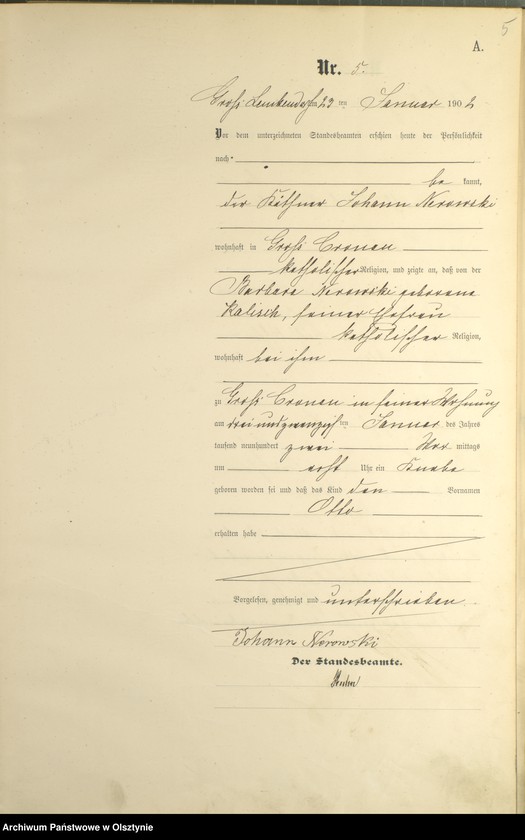 5
A.
Nr. 5.
Groß Lemkendorf am 23 ten Januar 1902
Vor dem unterzeichneten Standesbeamten erschien heute der Persönlichkeit
nach
be kannt,
der Käthner Johann Nerowski
wohnhaft in Groß Cronau
katholischer Religion, und zeigte an, daß von der
Barbara Nerowski geborene
Kalisch, seiner Ehefrau
katholischer Religion,
wohnhaft bei ihm
zu Groß Cronau in seiner Wohnung
am drei und zwanzigsten Januar des Jahres
tausend neunhundert zwei Vor mittags
um acht Uhr ein Knabe
geboren worden sei und daß das Kind den Vornamen
Otto
erhalten habe
Vorgelesen, genehmigt und unterschrieben
Johann Nerowski
Der Standesbeamte.
Archiwum Państwowe w Olsztynie